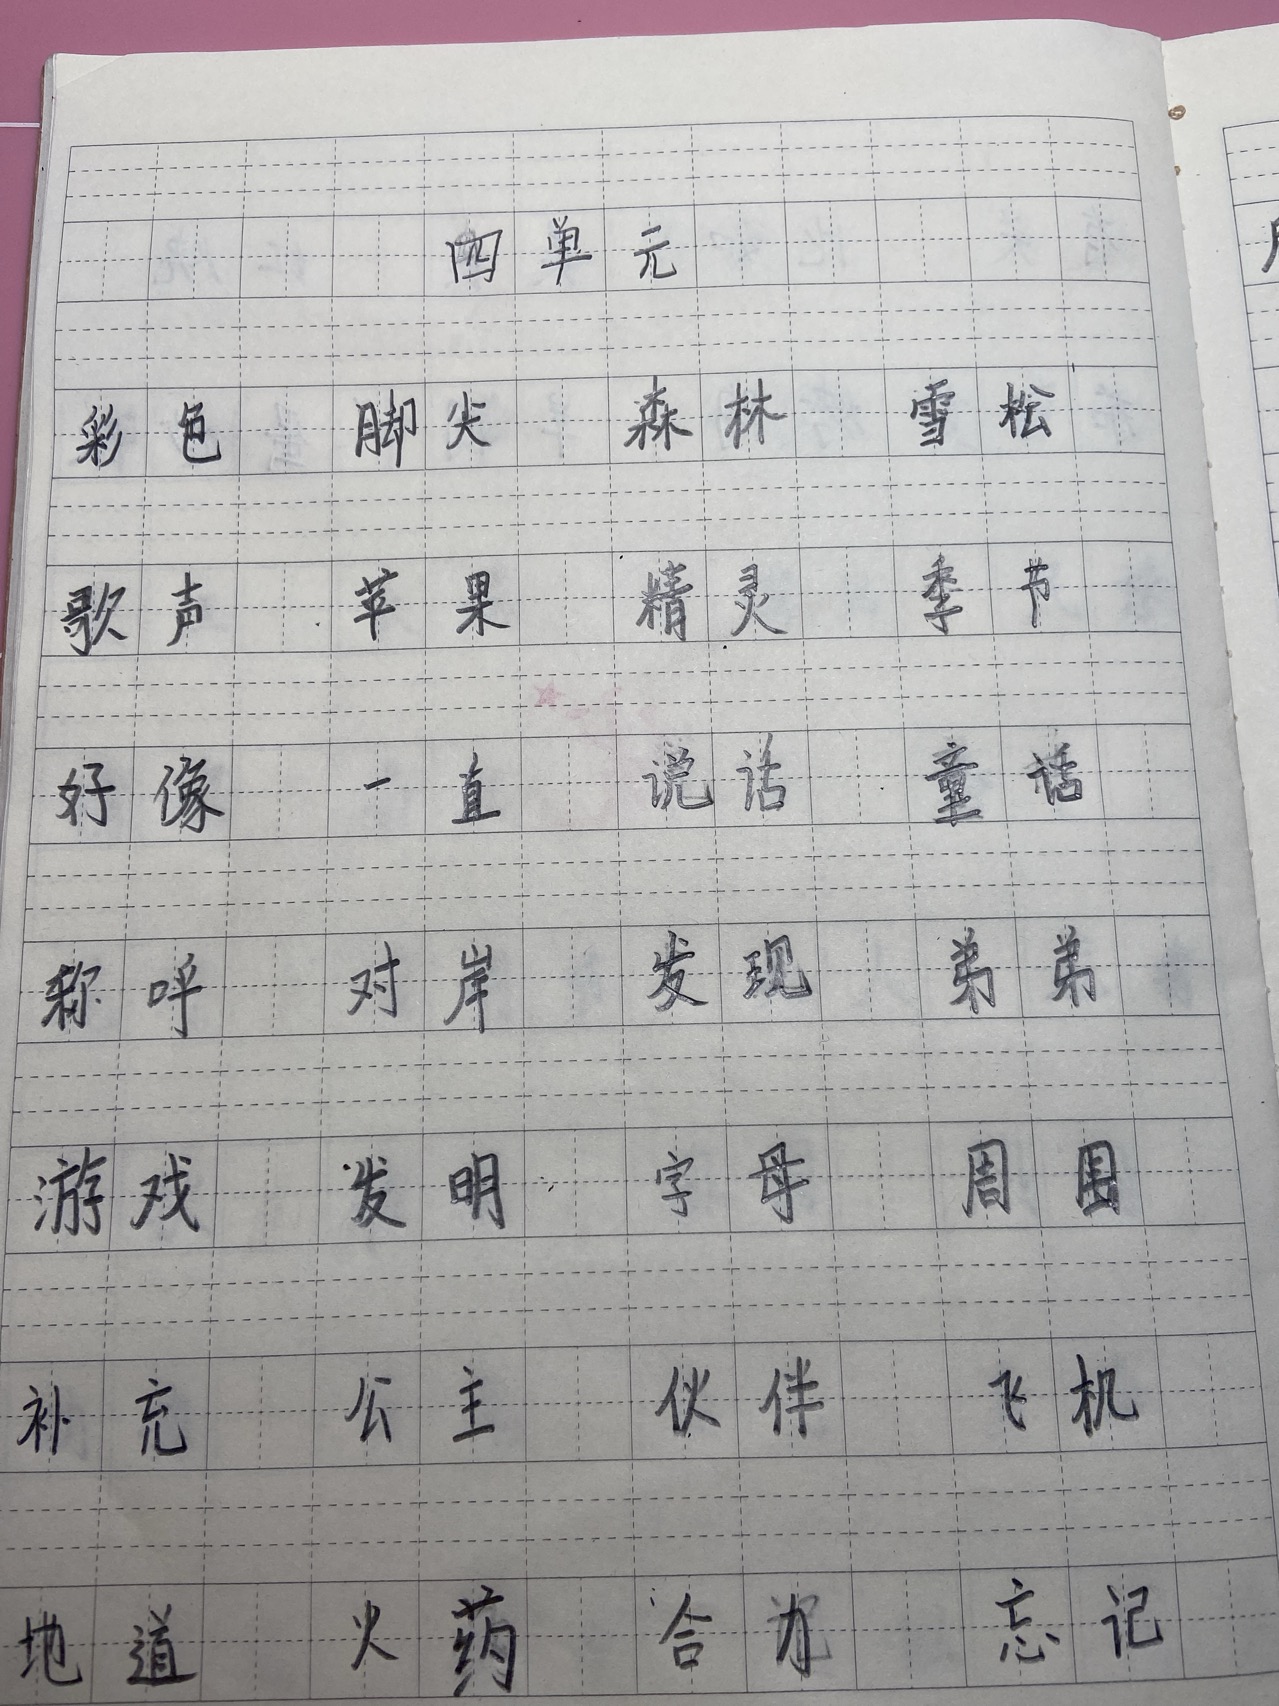 四单元
彩色 脚尖 森林 雪松
歌声 苹果 精灵 季节
好像 一直 说话 童话
称呼 对岸 发现 弟弟
游戏 发明 字母 周围
补充 公主 伙伴 飞机
地道 火药 合力 忘记